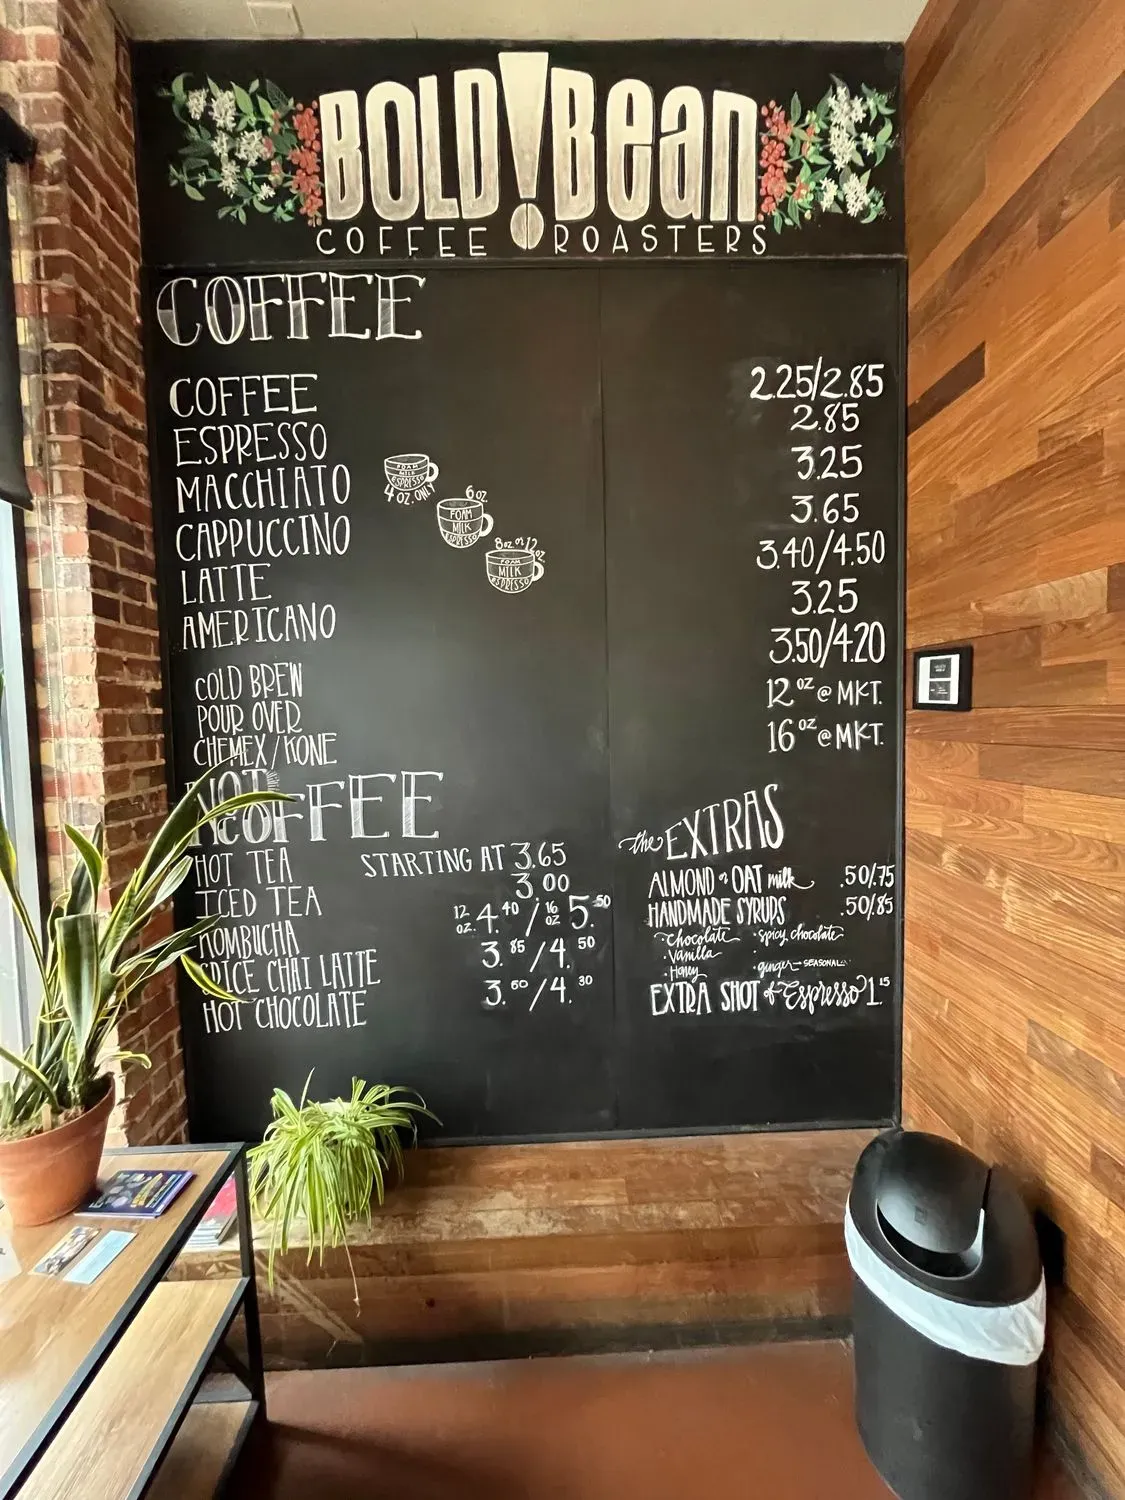 BOLD!Bean
COFFEE ROASTERS
COFFEE
COFFEE 2.25/2.85
ESPRESSO 2.85
MACCHIATO 3.25
CAPPUCCINO 3.65
LATTE 3.40/4.50
AMERICANO 3.25
COLD BREW 3.50/4.20
POUR OVER 12 oz @ MKT.
CHEMEX/KONE 16 oz @ MKT.
FOAM
MILK
ESPRESSO
4 OZ. ONLY
6 OZ.
FOAM
MILK
ESPRESSO
8 oz or 12 oz.
FOAM
MILK
ESPRESSO
NOT COFFEE
HOT TEA STARTING AT 3.65
ICED TEA 3.00
KOMBUCHA 12 OZ. 4.40 / 16 OZ 5.50
SPICE CHAI LATTE 3.85/4.50
HOT CHOCOLATE 3.60/4.30
the EXTRAS
ALMOND or OAT milk .50/.75
HANDMADE SYRUPS .50/.85
· Chocolate · spicy chocolate
· Vanilla
· Honey · ginger - SEASONAL
EXTRA SHOT of Espresso 1.15